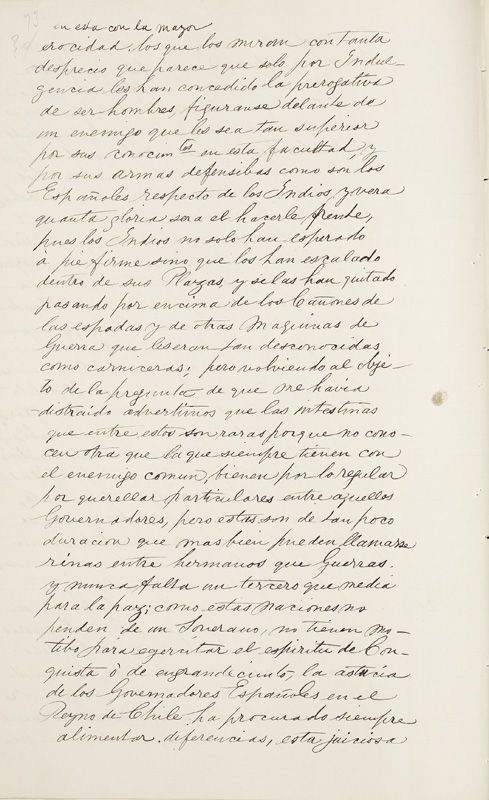 73
en esta con la mayor
erocidad, los que los miran con tanta
desprecio que parece que solo por Indul-
gencia les han concedido la prerogativa
de ser hombres, figuranse delante de
un enemigo que les sea tan superior
por sus conocim.tos en esta facultad, y
por sus armas defensibas como son los
Españoles respecto de los Indios, y vera
quanta gloria sera el hacerle frente,
pues los Indios no solo han esperado
á pie firme sino que los han escalado
dentro de sus Plazas, y selas han quitado
pasando por encima de los Cañones de
las espadas y de otras Maquinas de
Guerra que les eran tan desconocidas
como carniceras; pero volviendo al obje-
to de la pregunta de que me havia
distraido advertimos que las intestinas
que entre estos son raras porque no cono-
cen otra que la que siempre tienen con
el enemigo comun, bienen por lo regular
por querellar particulares entre aquellos
Governadores, pero estas son de tan poco
duracion que mas bien pueden llamarse
rinas entre hermanos que Guerras.
y nunca falta un tercero que media
para la paz; como estas Naciones no
penden de un Soverano, no tienen mo-
tibo para egercitar el espiritu de Con-
quista ò de engrandecimto, la astucia
de los Governadores Españoles en el
Reyno de Chile ha procurado siempre
alimentar diferencias, esta juiciosa